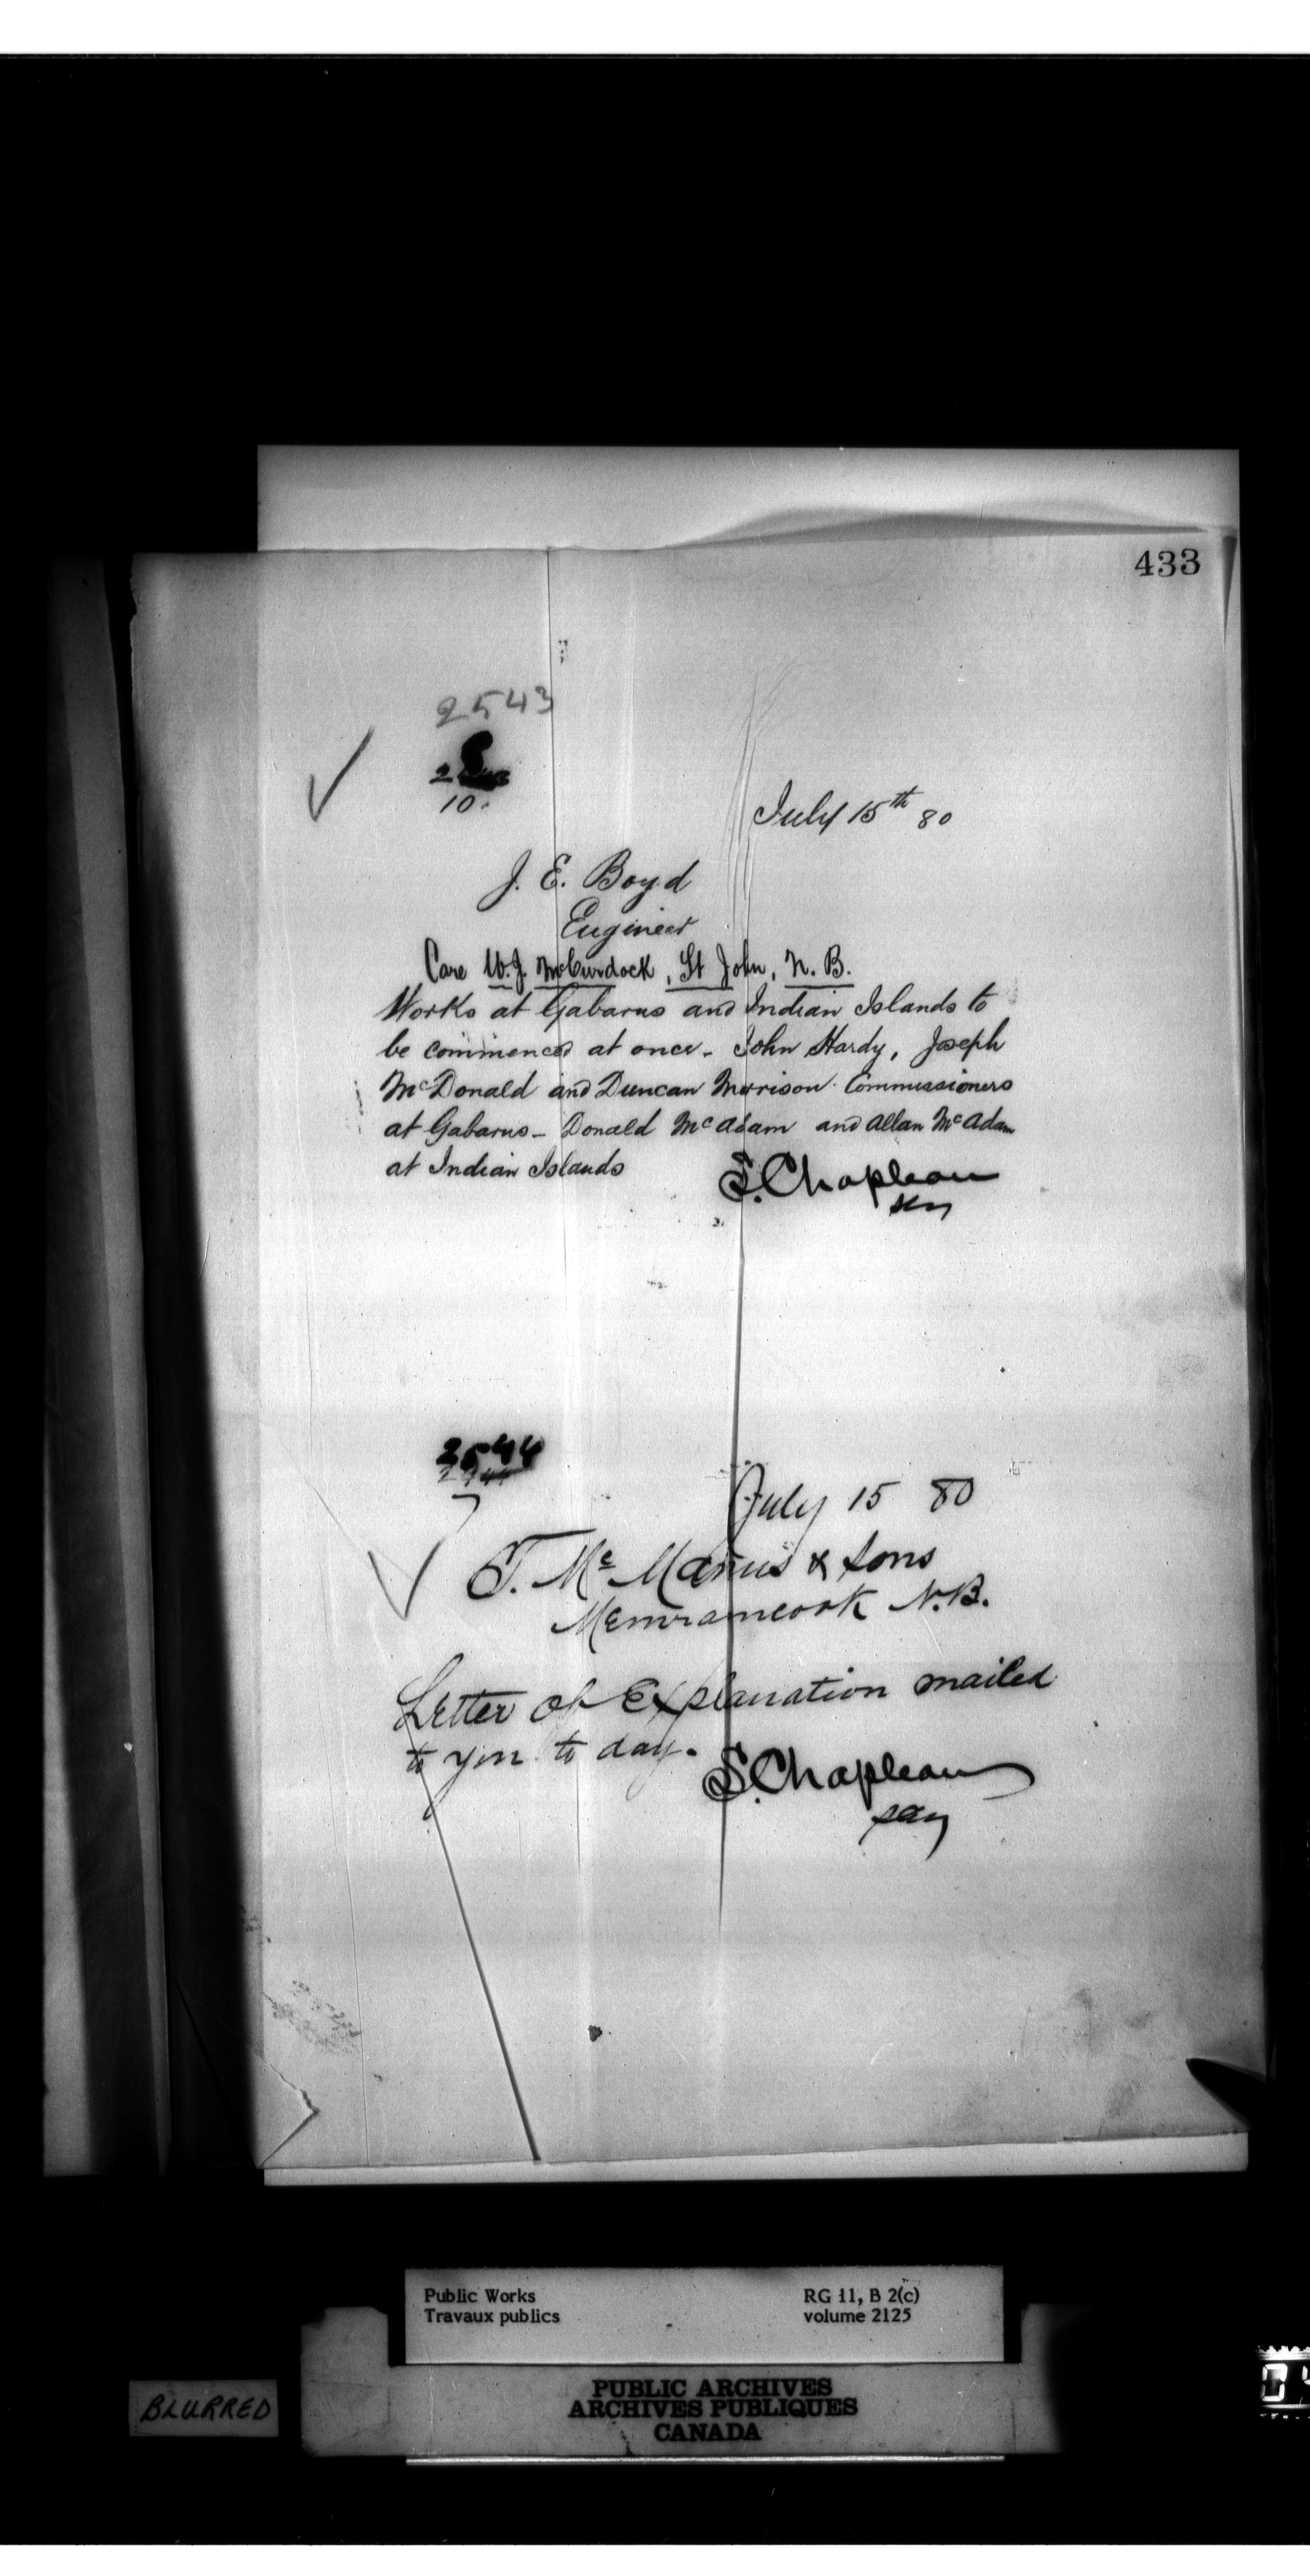 433
2543
10.
July 15th 80
J. E. Boyd
Engineer
Care W. J. McCurdock, St John, N. B.
Works at Gabarus and Indian Islands to
be commenced at once - John Hardy, Joseph
McDonald and Duncan Morrison Commissioners
at Gabarus - Donald McAdam and Allan McAdam
at Indian Islands
S. Chapleau
2544
7
July 15 80
T. McManus & Sons
Memramcook N.B.
Letter of Explanation mailed
to you to day.
S. Chapleau
Public Works
Travaux publics
RG 11, B 2(c)
volume 2125
BLURRED
PUBLIC ARCHIVES
ARCHIVES PUBLIQUES
CANADA